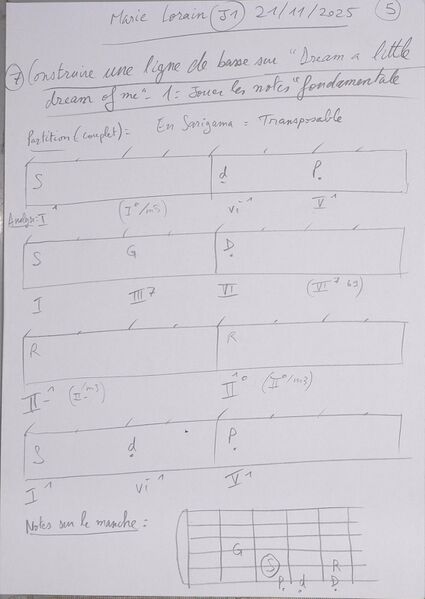 Marie Lorain (J1) 21/11/2025 5
7 Construire une ligne de basse sur "Dream a little
dream of me" - 1 = Jouer les notes "fondamentale
Partition (couplet) = En Sarigama = Transposable
S d P
Analyse: I 1 (I°/m3) vi 1 V 1
S G D
I III 7 VI (VI 7 b9)
R R
II-1 (II-/m3) II 1 0 (II°/m3)
S d P
I 1 vi 1 V 1
Notes sur le manche =
G S R
P d D